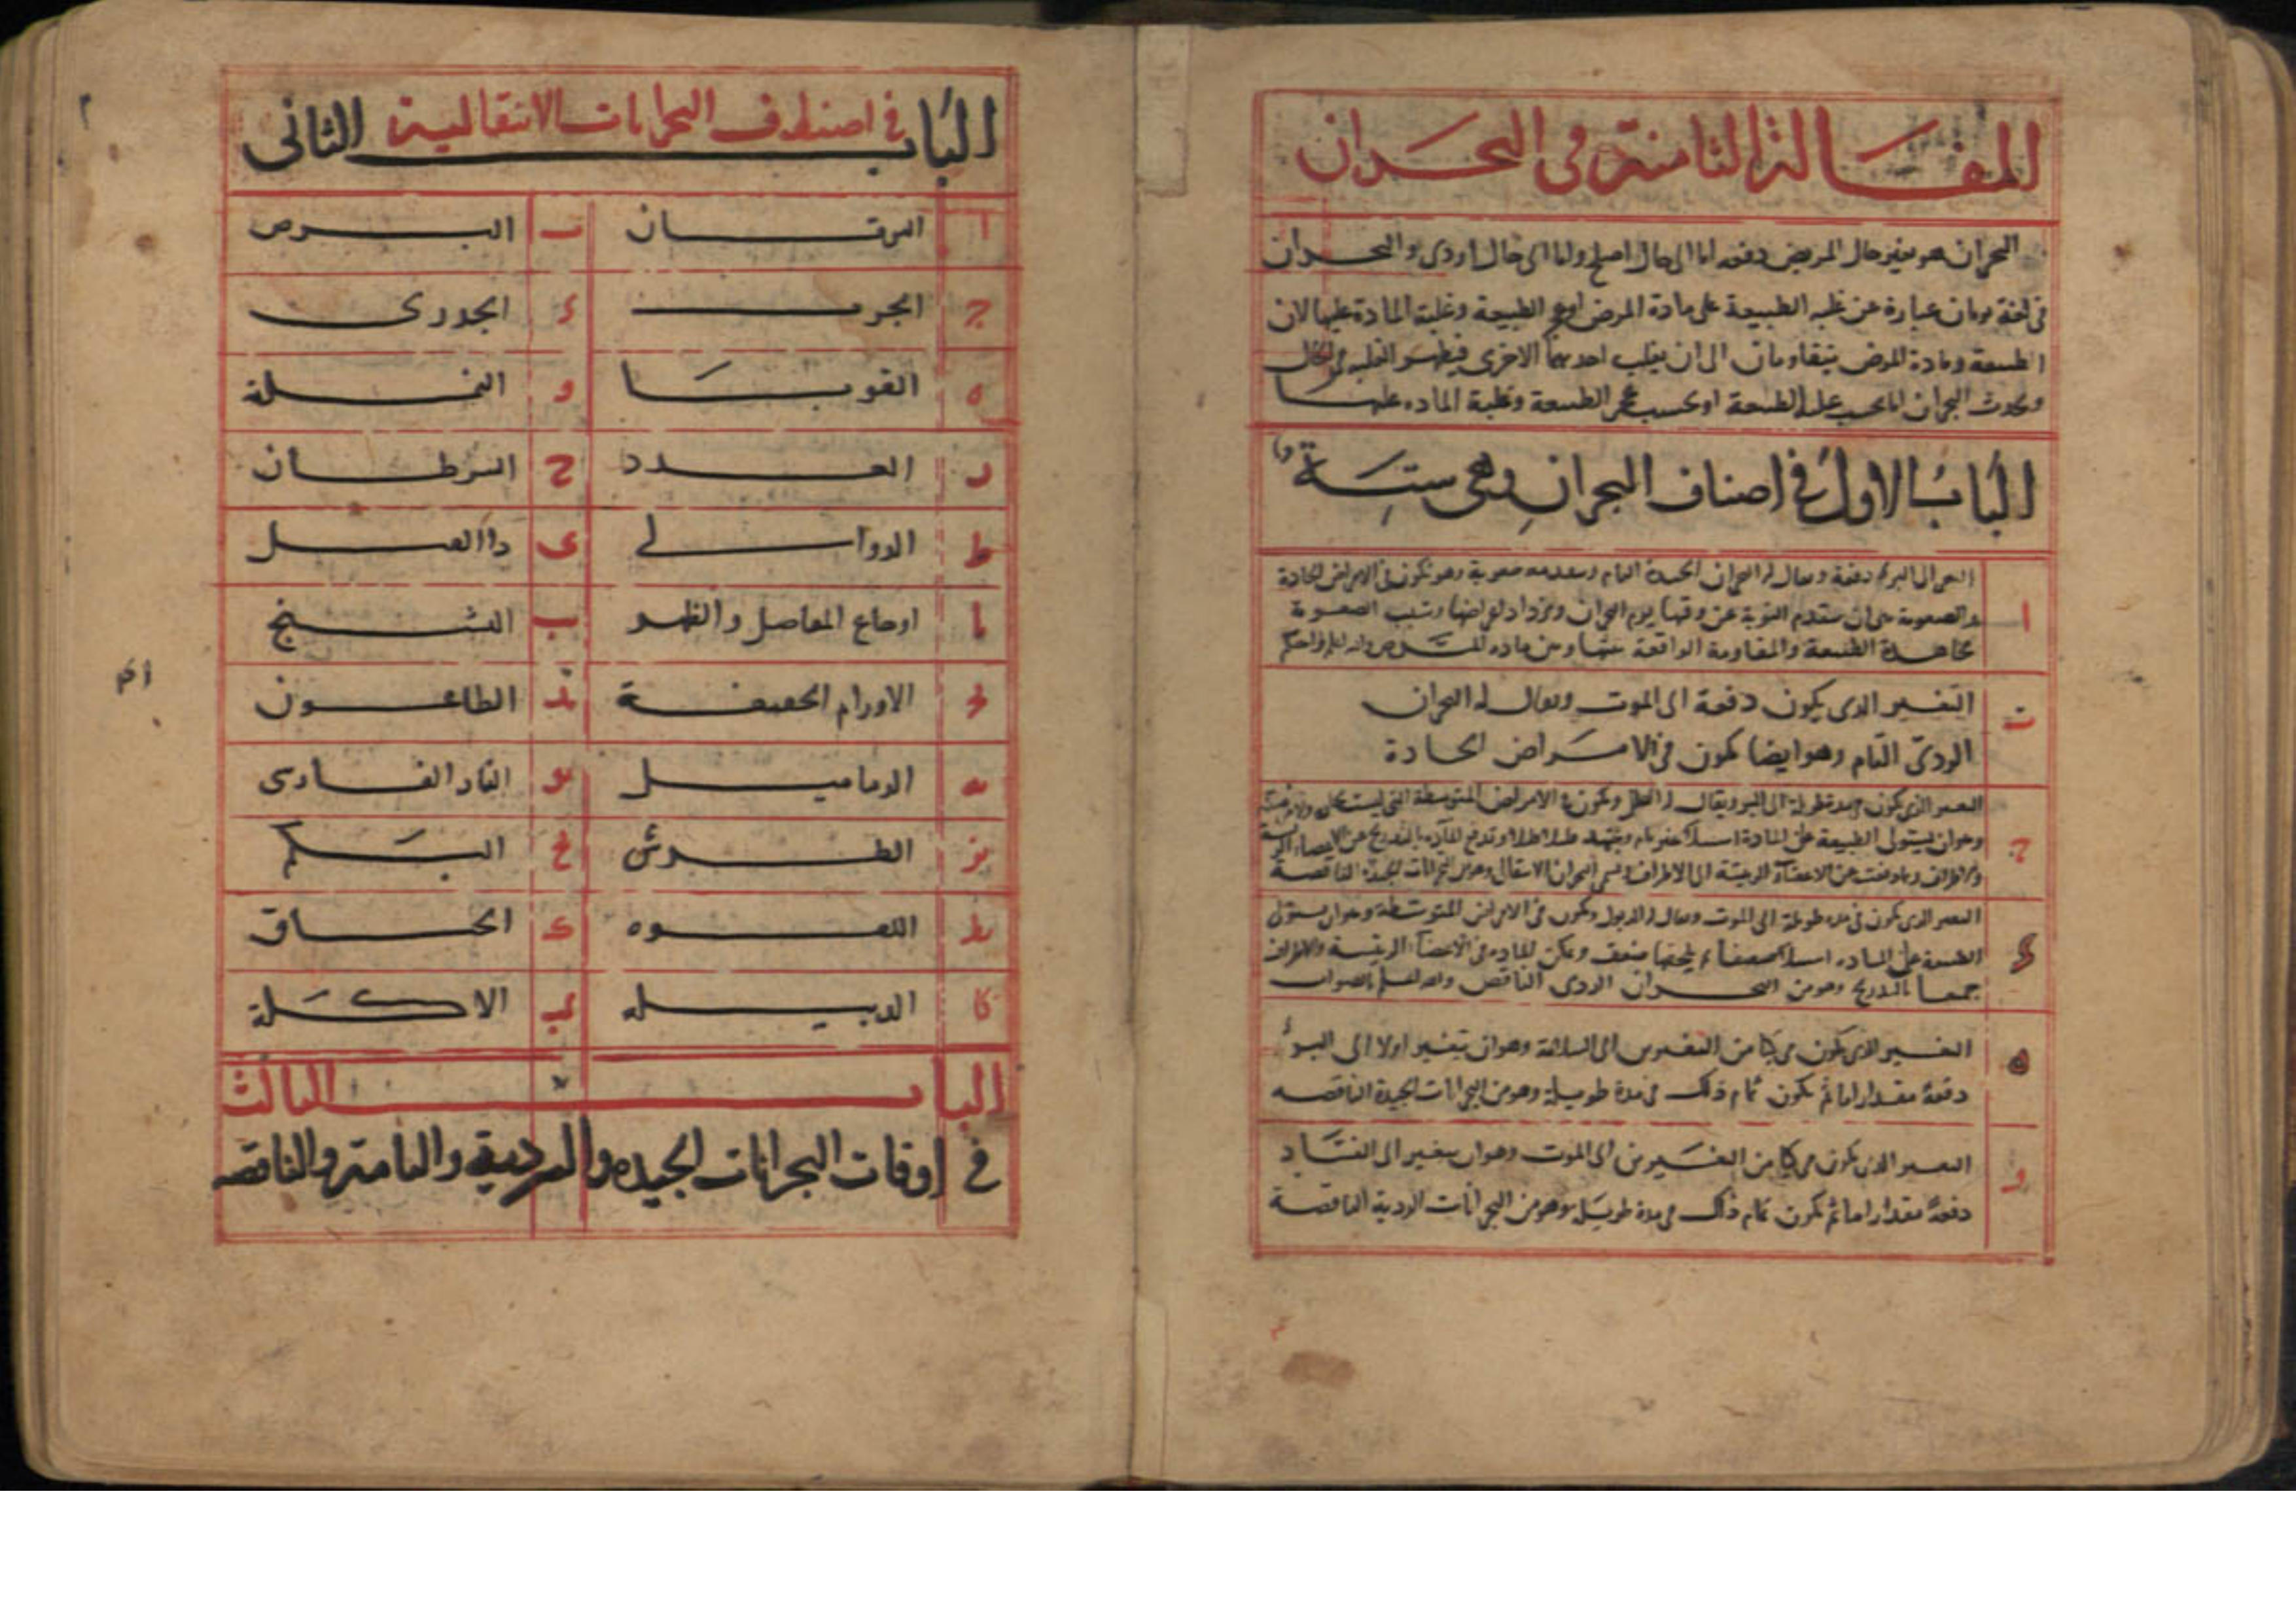 المقالة الثامنة في البحران
البحران هو تغير حال المريض دفعه اما الى حال اصلح واما الى حال اردى والبحران
في لغة يونان عبارة عن غلبه الطبيعة على مادة المرض او عجز الطبيعة وغلبة المادة عليها لان
الطبيعة ومادة المرض يتقاومان الى ان يغلب احديهما الاخرى فيظهر الغلبه
وحدوث البحران اما بحسب غلبة الطبيعة او بحسب عجز الطبيعة وغلبة الماده عليها
الباب الاول في اصناف البحران وهي ستة
ا
التغير الى البرء دفعة ويقال له البحران الجيد التام ويتقدمه صعوبة وهو يكون في الامراض الحادة
والصعوبة هي ان يتقدم النوبة عن وقتها يوم البحران وتزداد اعراضها وسبب الصعوبة
مجاهدة الطبيعة والمقاومة الواقعة بينها وبين ماده المرض
ب
التغير الذى يكون دفعة الى الموت ويقال له البحران
الردئ التام وهو ايضا يكون في الامراض الحادة
ج
التغير الذى يكون في مدة طويلة الى البرء ويقال له التحلل ويكون في الامراض المتوسطة التي ليست
وهو ان يستولى الطبيعة على المادة استيلاء غير تام وتدفع المادة بالتدريج عن الاعضاء
الاعضاء الرئيسة الى الاطراف ويسمى البحران الانتقالى وهو من البحرانات الجيدة الناقصة
د
التغير الذى يكون في مده طويلة الى الموت ويقال له الذبول ويكون في الامراض المتوسطة وهو ان يستولى
الطبيعة على الماده استيلاء ضعيفا يلحقها ضعف وتمكن الماده في الاعضاء الرئيسة والاطراف
جميعا بالتدريج وهو من البحران الردى الناقص والله اعلم بالصواب
ه
التغير الذى يكون مركبا من التغيرين الى السلامة وهو ان يتغير اولا الى البرء
دفعة مقدارا ما ثم يكون تمام ذلك في مدة طويلة وهو من البحرانات الجيدة الناقصه
و
التغير الذى يكون مركبا من التغيرين الى الموت وهو ان يتغير الى الفساد
دفعة مقدارا ما ثم يكون تمام ذلك في مدة طويلة وهو من البحرانات الردية الناقصة
الباب في اصناف البحرانات الانتقالية الثاني
ا اليرقان ب البرص
ج الجرب د الجدرى
ه القوبا و النملة
ز الغدد ح السرطان
ط الدوالي ى داالفيل
يا اوجاع المفاصل والظهر يب التشنج
يج الاورام الخفيفة يد الطاعون
يه الدماميل يو النار الفارسى
يز الطرش يح البكم
يط اللقوه ك الخناق
كا الدبيله كب الاكلة
الباب الثالث
في اوقات البحرانات الجيده والرديه والتامة والناقصه